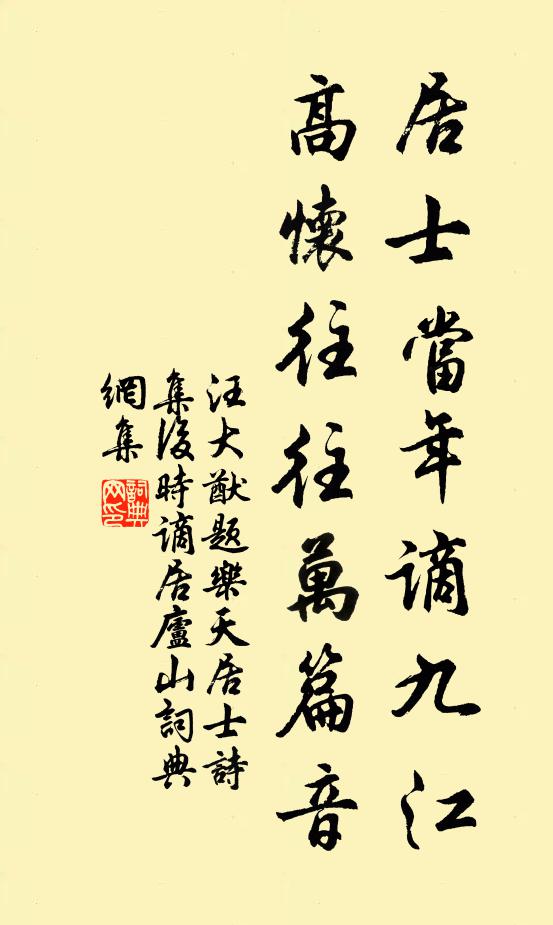 居士當年謫九江
高懷往往萬篇音
汪大猷題樂天居士詩
集後時謫居廬山詞典
網集
詞典網印